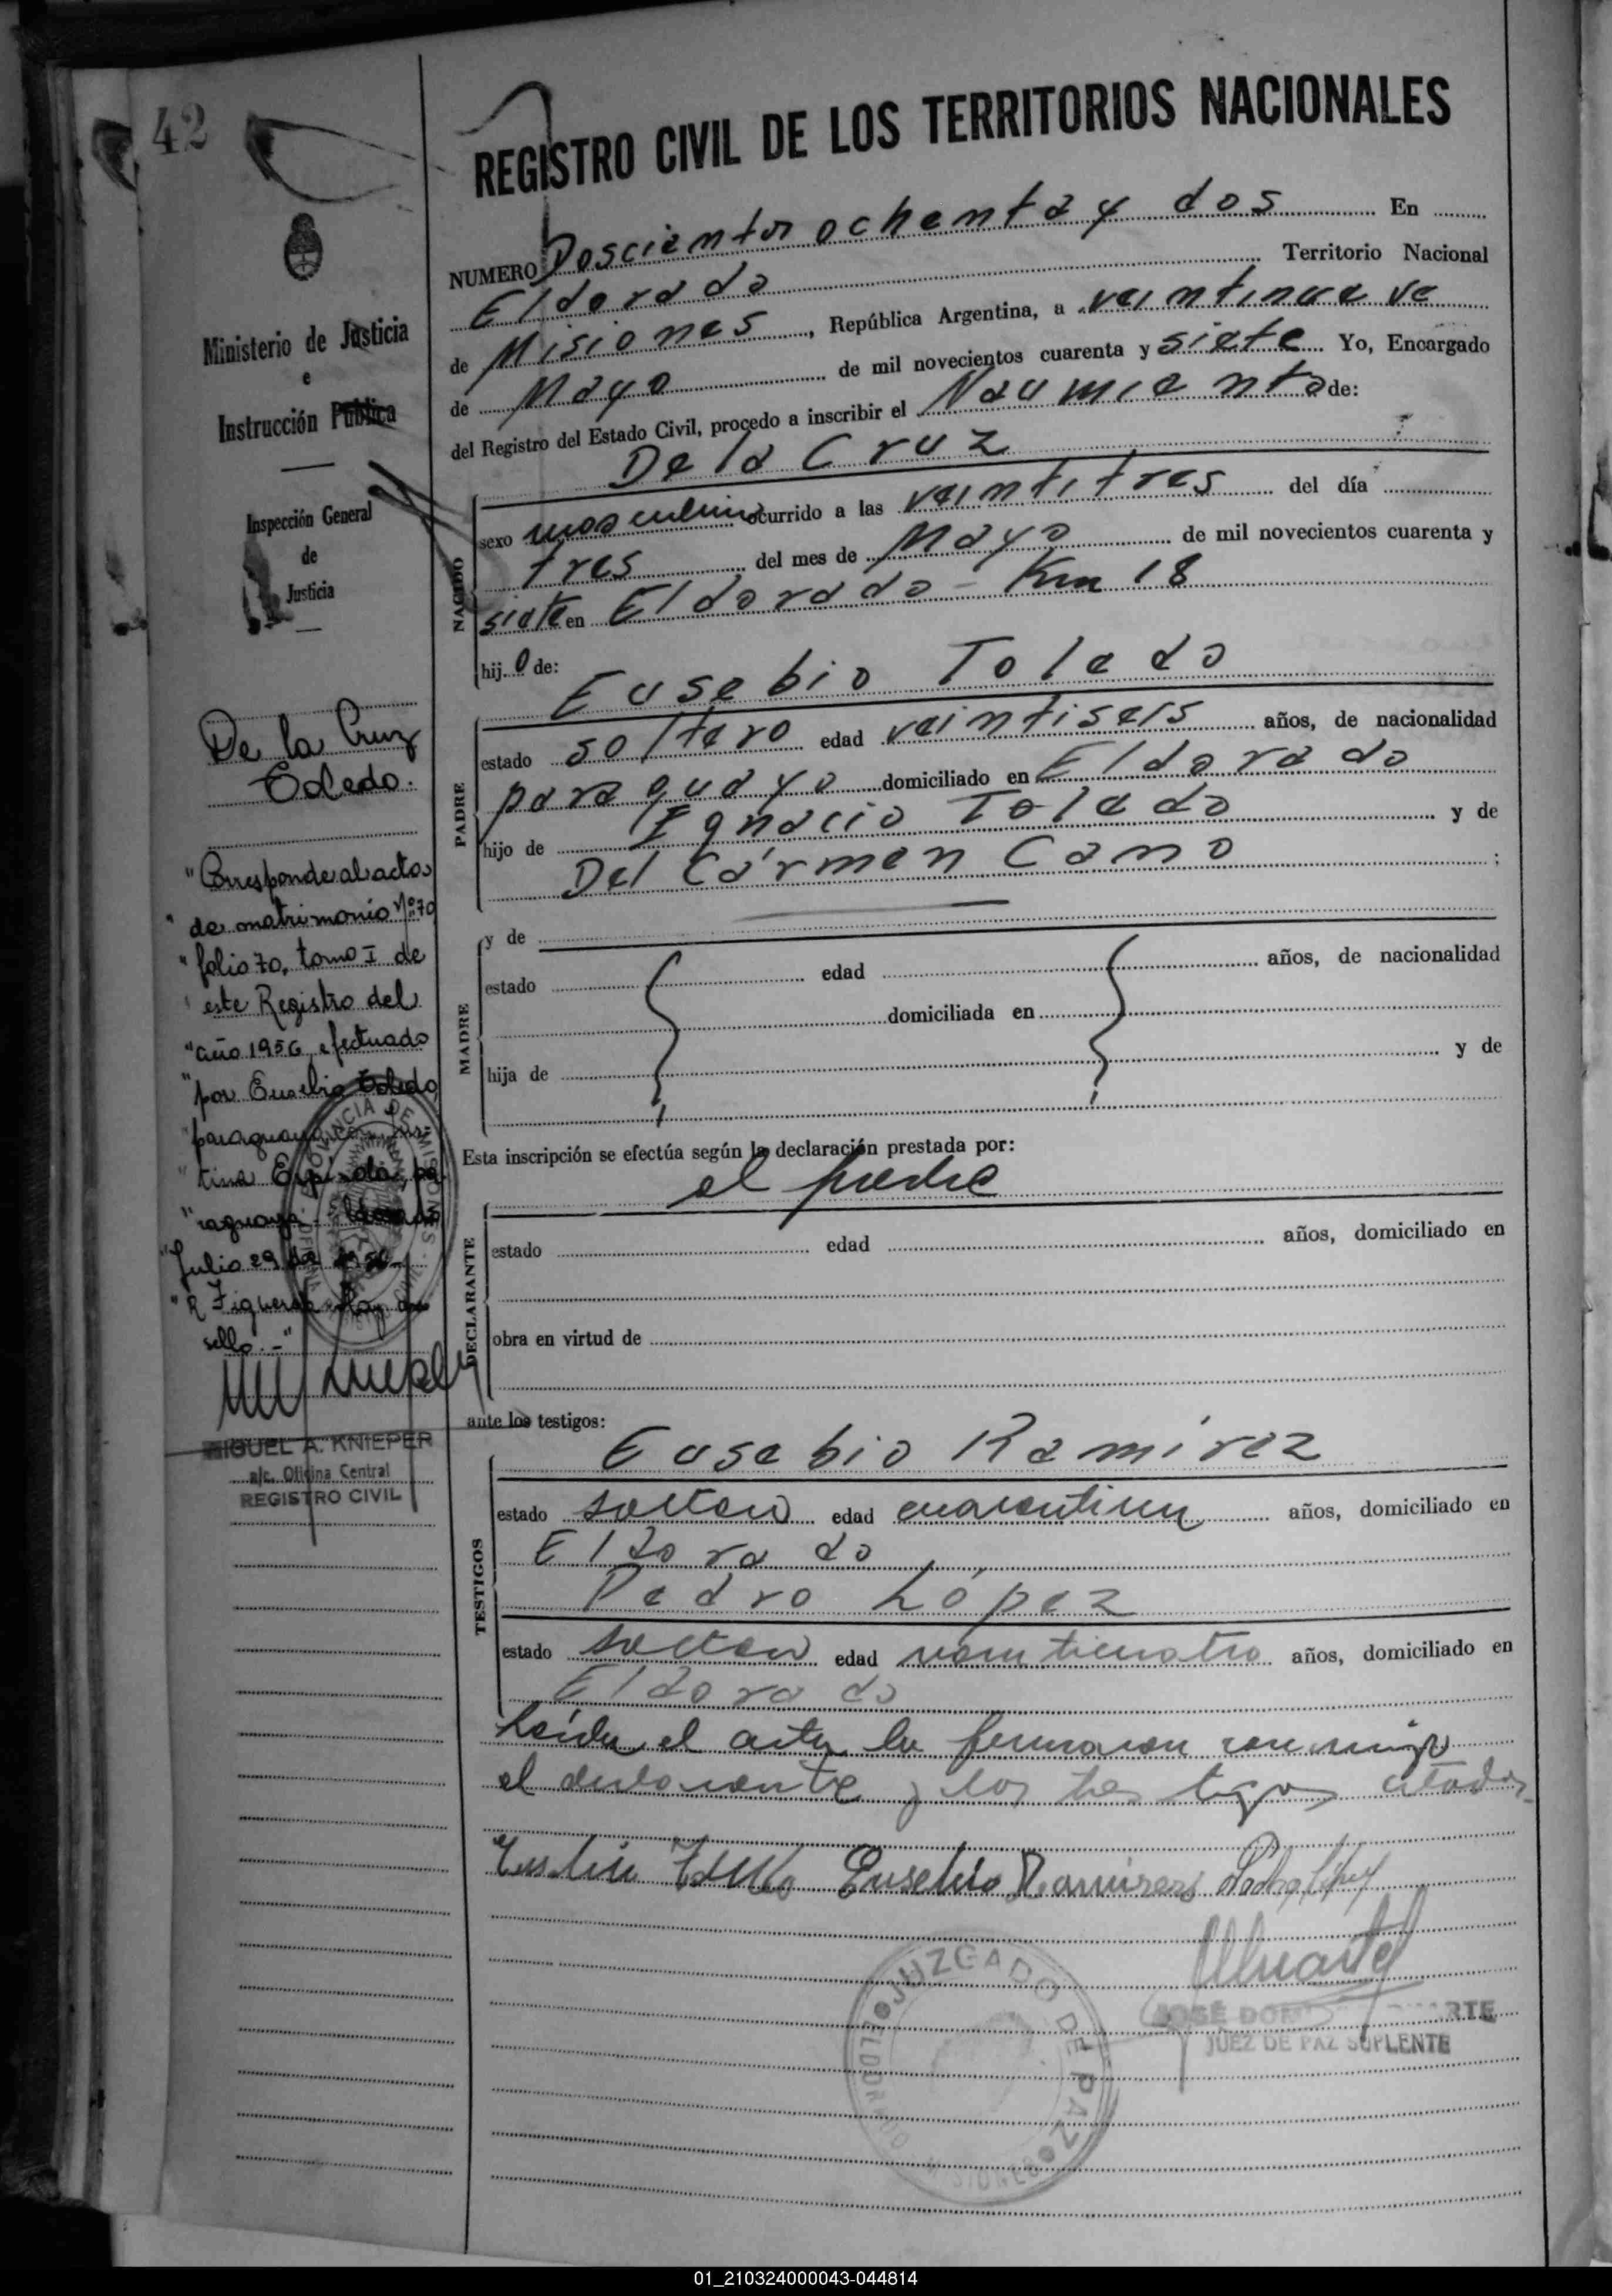 42
REGISTRO CIVIL DE LOS TERRITORIOS NACIONALES
NUMERO Doscientos ochenta y dos En
Eldorado Territorio Nacional
de Misiones, República Argentina, a veintinueve
de Mayo de mil novecientos cuarenta y siete Yo, Encargado
del Registro del Estado Civil, procedo a inscribir el Naumiento de:
De la Cruz
sexo masculino ocurrido a las veintitres del día
tres del mes de Mayo de mil novecientos cuarenta y
siete en Eldorado - Km 18
hijo de:
Eusebio Toledo
NACIDO
estado soltero edad veintiseis años, de nacionalidad
paraguayo domiciliado en Eldorado
hijo de Ignacio Toledo y de
Del Cármen Cano ;
PADRE
y de
estado edad años, de nacionalidad
domiciliada en
hija de y de
MADRE
Esta inscripción se efectúa según la declaración prestada por:
el padre
estado edad años, domiciliado en
obra en virtud de
DECLARANTE
ante los testigos:
Eusebio Ramírez
estado soltero edad cuarentiun años, domiciliado en
Eldorado
Pedro López
estado soltero edad veinticuatro años, domiciliado en
Eldorado
TESTIGOS
Leída el acta la firmaron conmigo
el declarante y los testigos citados
Eusebio Ramirez Pedro López
JUZGADO DE PAZ
JOSÉ
JUEZ DE PAZ SUPLENTE
Ministerio de Justicia
e
Instrucción Pública
Inspección General
de
Justicia
De la Cruz
Toledo.
"Corresponde al acta
" de matrimonio Nº 70
" folio 70, tomo I de
" este Registro del
"año 1956, efectuado
"por Eusebio Toledo,
"paraguayo con
"tina Espindola, pa
"raguaya.
"Julio 29 de 1956
"R Figueroa. Hay un
sello.-"
PROVINCIA DE MISIONES
MIGUEL A. KNIEPER
a/c. Oficina Central
REGISTRO CIVIL
01_210324000043-044814